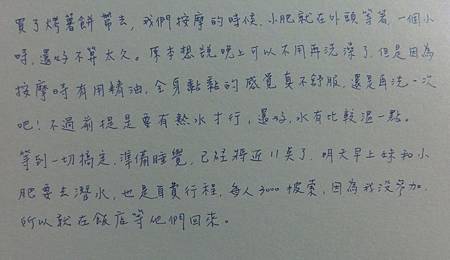 買了烤薯餅帶去，我們按摩的時候，小肥就在外頭等著，一個小
時，還好不算太久。原本想說晚上可以不用再洗澡了，但是因為
按摩時有用精油，全身黏黏的感覺真不舒服，還是再洗一次
吧！不過前提是要有熱水才行，還好，水有比較溫一點。
等到一切搞定，準備睡覺，已經將近11點了，明天早上妹和小
肥要去潛水，也是自費行程，每人3000披索，因為我沒參加，
所以就在飯店等他們回來。